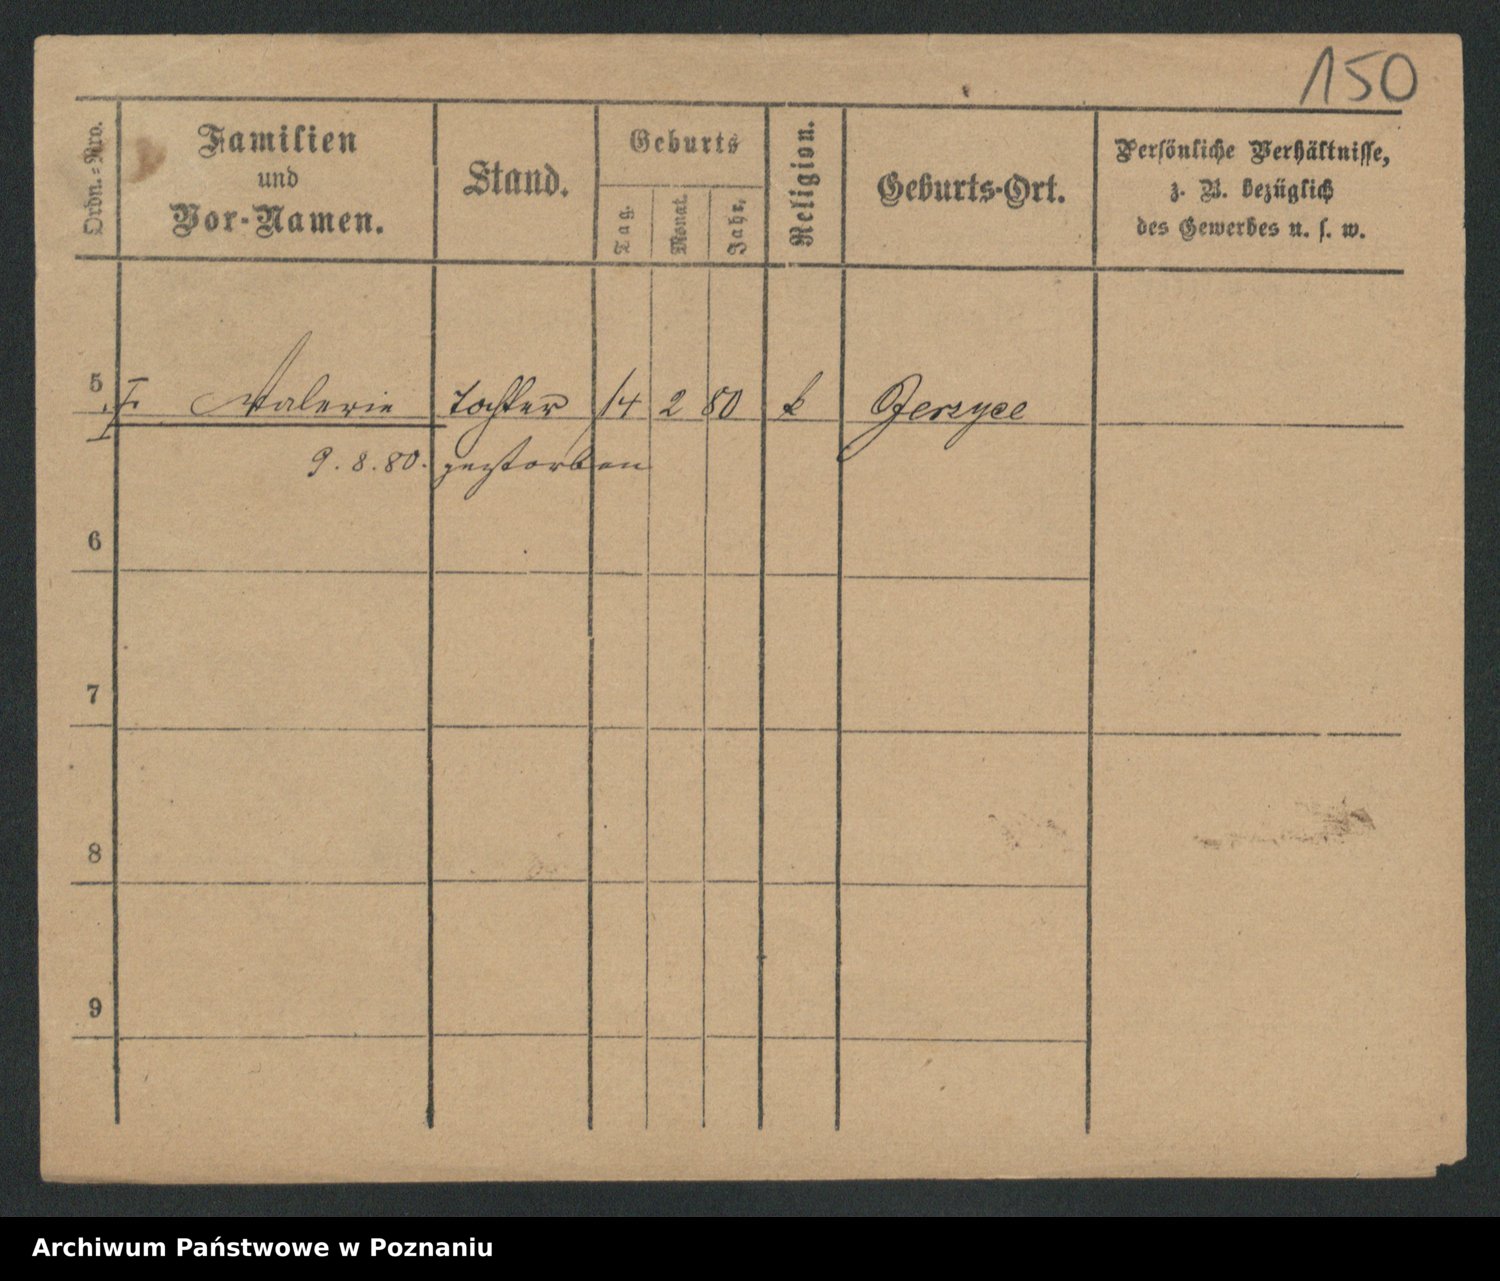 150
Ordn.-Nro.
Familien
und
Vor-Namen.
Stand.
Geburts
Tag.
Monat.
Jahr.
Religion.
Geburts-Ort.
Persönliche Verhältnisse,
z. B. bezüglich
des Gewerbes u. s. w.
5 Valerie Tochter 14 2 80 k Jerzyce
9. 8. 80. gestorben
6
7
8
9
Archiwum Państwowe w Poznaniu